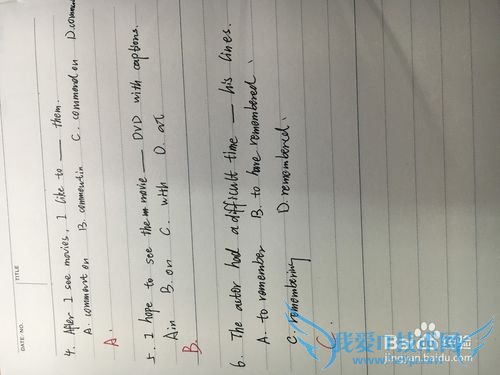 DATE/NO.
TITLE
4. After I see movies, I like to ___ them.
A. comment on B. comment in C. commend on D. commen
A.
5. I hope to see the movie ___ DVD with captions.
A in B. on C. with D. at
B.
6. The actor had a difficult time ___ his lines.
A. to remember B. to have remembered.
C. remembering D. remembered.
C.
我爱IT技术网
Baidu 经验
jingyan.baidu.com